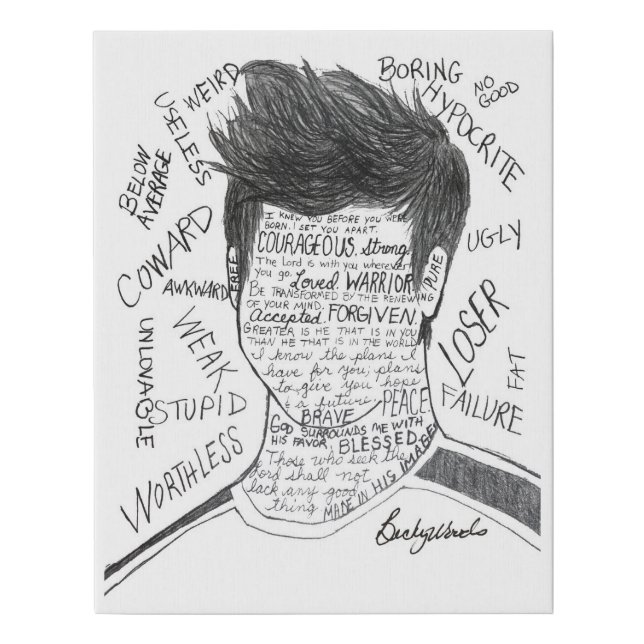 WEIRD
USELESS
BELOW
AVERAGE
COWARD
AWKWARD
WEAK
UNLOVABLE
STUPID
WORTHLESS
BORING
NO
GOOD
HYPOCRITE
UGLY
LOSER
FAT
FAILURE
FREE
PURE
I KNEW YOU BEFORE YOU WERE
BORN. I SET YOU APART.
COURAGEOUS. Strong.
The Lord is with you wherever
you go. Loved. WARRIOR
BE TRANSFORMED BY THE RENEWING
OF YOUR MIND.
Accepted. FORGIVEN.
GREATER IS HE THAT IS IN YOU
THAN HE THAT IS IN THE WORLD
I know the plans I
have for you; plans
to give you hope
& a future. PEACE.
BRAVE
GOD SURROUNDS ME WITH
HIS FAVOR. BLESSED.
Those who seek the
Lord shall not
lack any good
thing MADE IN HIS IMAGE
BeckyWoods